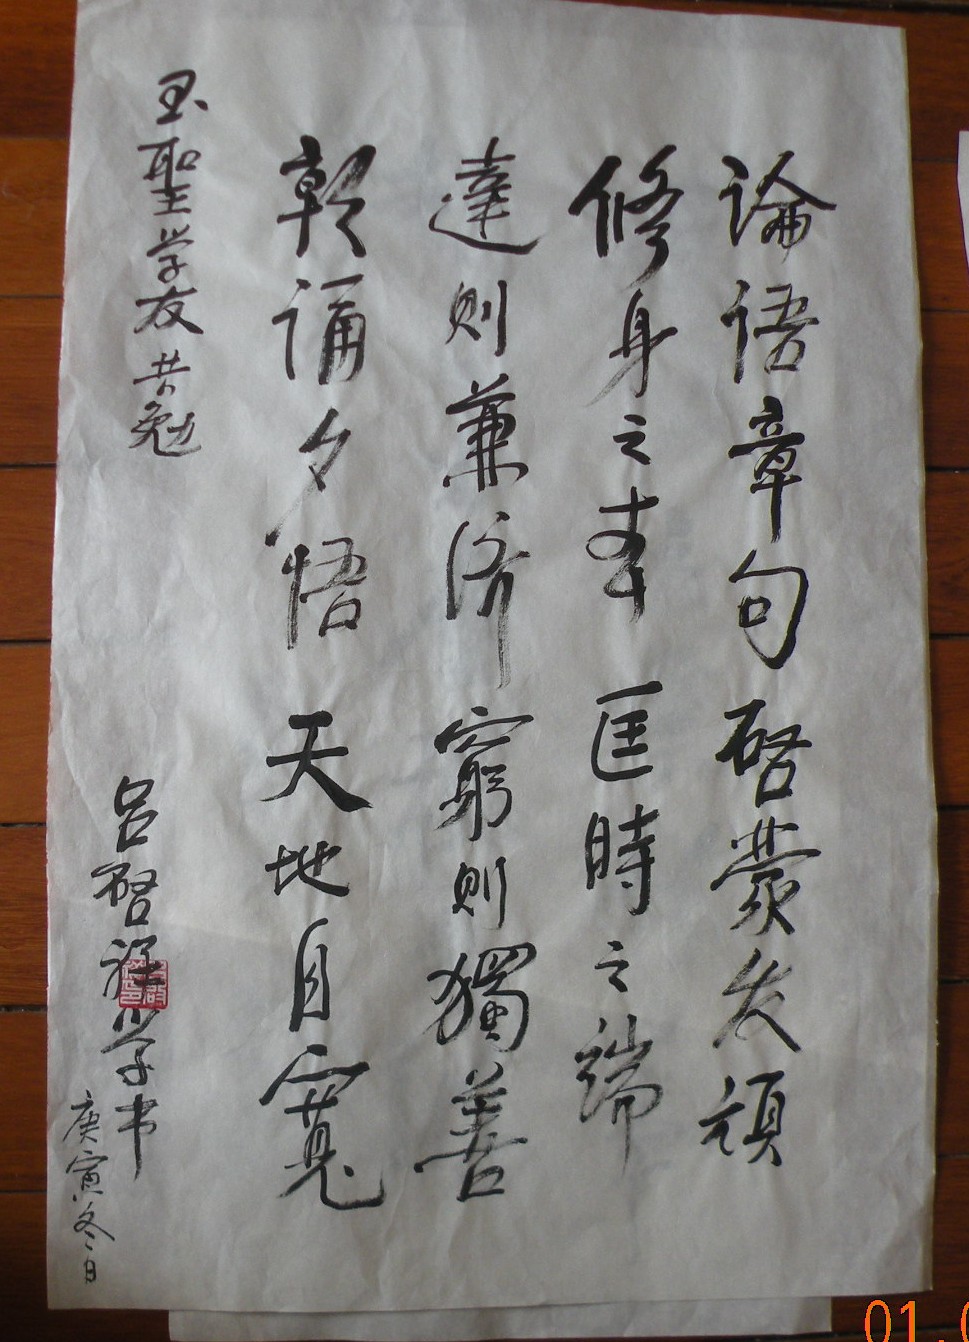 論語章句啓蒙发頑
修身之本匡時之端
達則兼济窮則獨善
朝誦夕悟天地自寬
玉聖学友共勉
吕啓祥学书
庚寅冬日
01.0